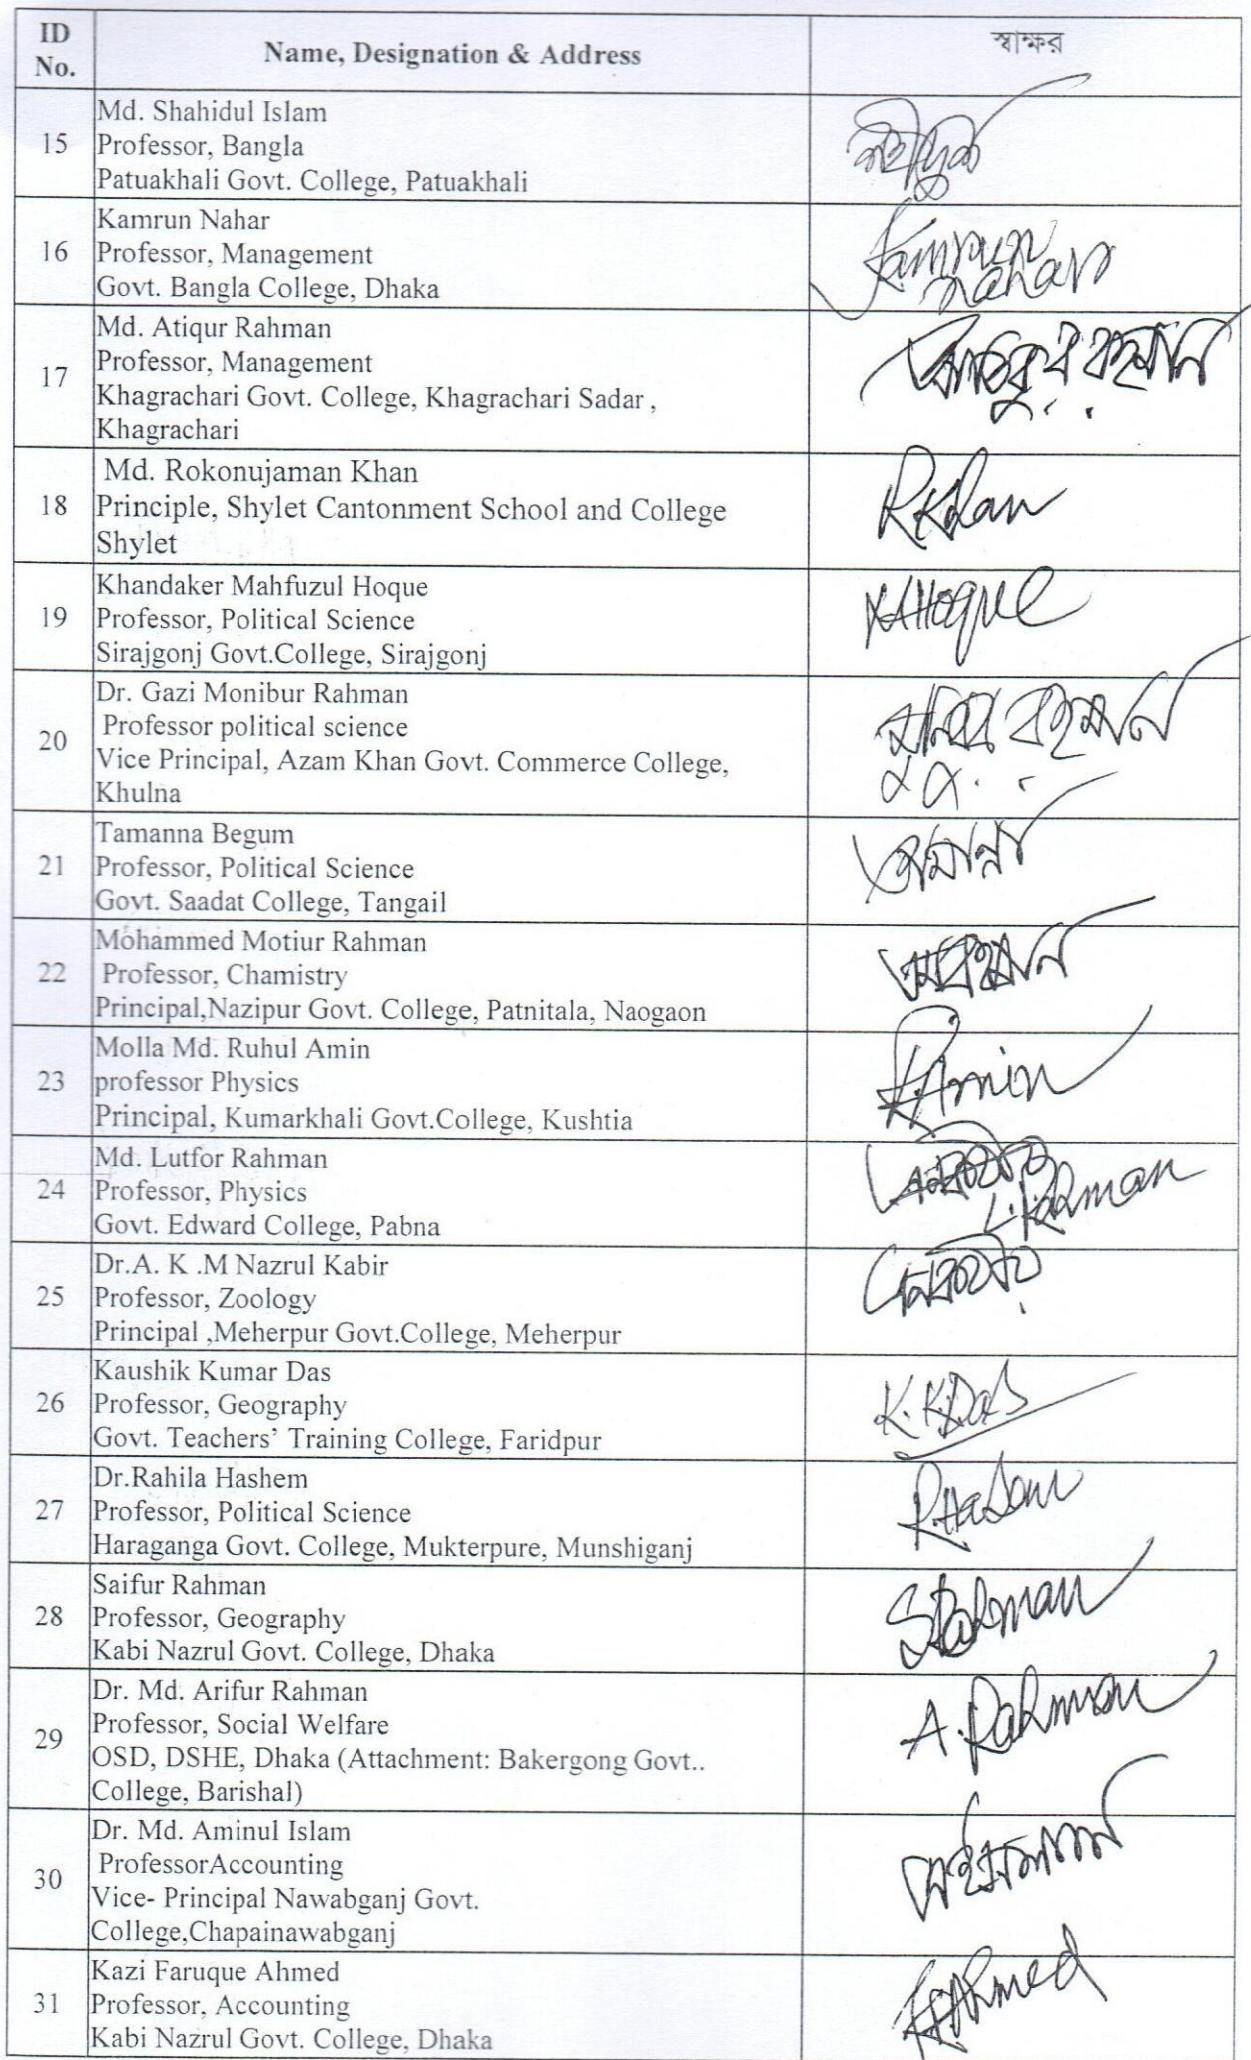 ID No. Name, Designation & Address স্বাক্ষর
Md. Shahidul Islam
15 Professor, Bangla
Patuakhali Govt. College, Patuakhali
Kamrun Nahar Kamrun
16 Professor, Management Nahar
Govt. Bangla College, Dhaka
Md. Atiqur Rahman
Professor, Management আতিকুর রহমান
17 Khagrachari Govt. College, Khagrachari Sadar ,
Khagrachari
Md. Rokonujaman Khan
18 Principle, Shylet Cantonment School and College RKhan
Shylet
Khandaker Mahfuzul Hoque
19 Professor, Political Science Hoque
Sirajgonj Govt.College, Sirajgonj
Dr. Gazi Monibur Rahman
Professor political science রহমান
20 Vice Principal, Azam Khan Govt. Commerce College,
Khulna
Tamanna Begum
21 Professor, Political Science
Govt. Saadat College, Tangail
Mohammed Motiur Rahman
22 Professor, Chamistry
Principal,Nazipur Govt. College, Patnitala, Naogaon
Molla Md. Ruhul Amin
23 professor Physics RAmin
Principal, Kumarkhali Govt.College, Kushtia
Md. Lutfor Rahman
24 Professor, Physics L.Rahman
Govt. Edward College, Pabna
Dr.A. K .M Nazrul Kabir
25 Professor, Zoology
Principal ,Meherpur Govt.College, Meherpur
Kaushik Kumar Das
26 Professor, Geography K.K.Das
Govt. Teachers’ Training College, Faridpur
Dr.Rahila Hashem
27 Professor, Political Science
Haraganga Govt. College, Mukterpure, Munshiganj
Saifur Rahman
28 Professor, Geography SRahman
Kabi Nazrul Govt. College, Dhaka
Dr. Md. Arifur Rahman
Professor, Social Welfare A.Rahman
29 OSD, DSHE, Dhaka (Attachment: Bakergong Govt..
College, Barishal)
Dr. Md. Aminul Islam
ProfessorAccounting
30 Vice- Principal Nawabganj Govt.
College,Chapainawabganj
Kazi Faruque Ahmed
31 Professor, Accounting Ahmed
Kabi Nazrul Govt. College, Dhaka